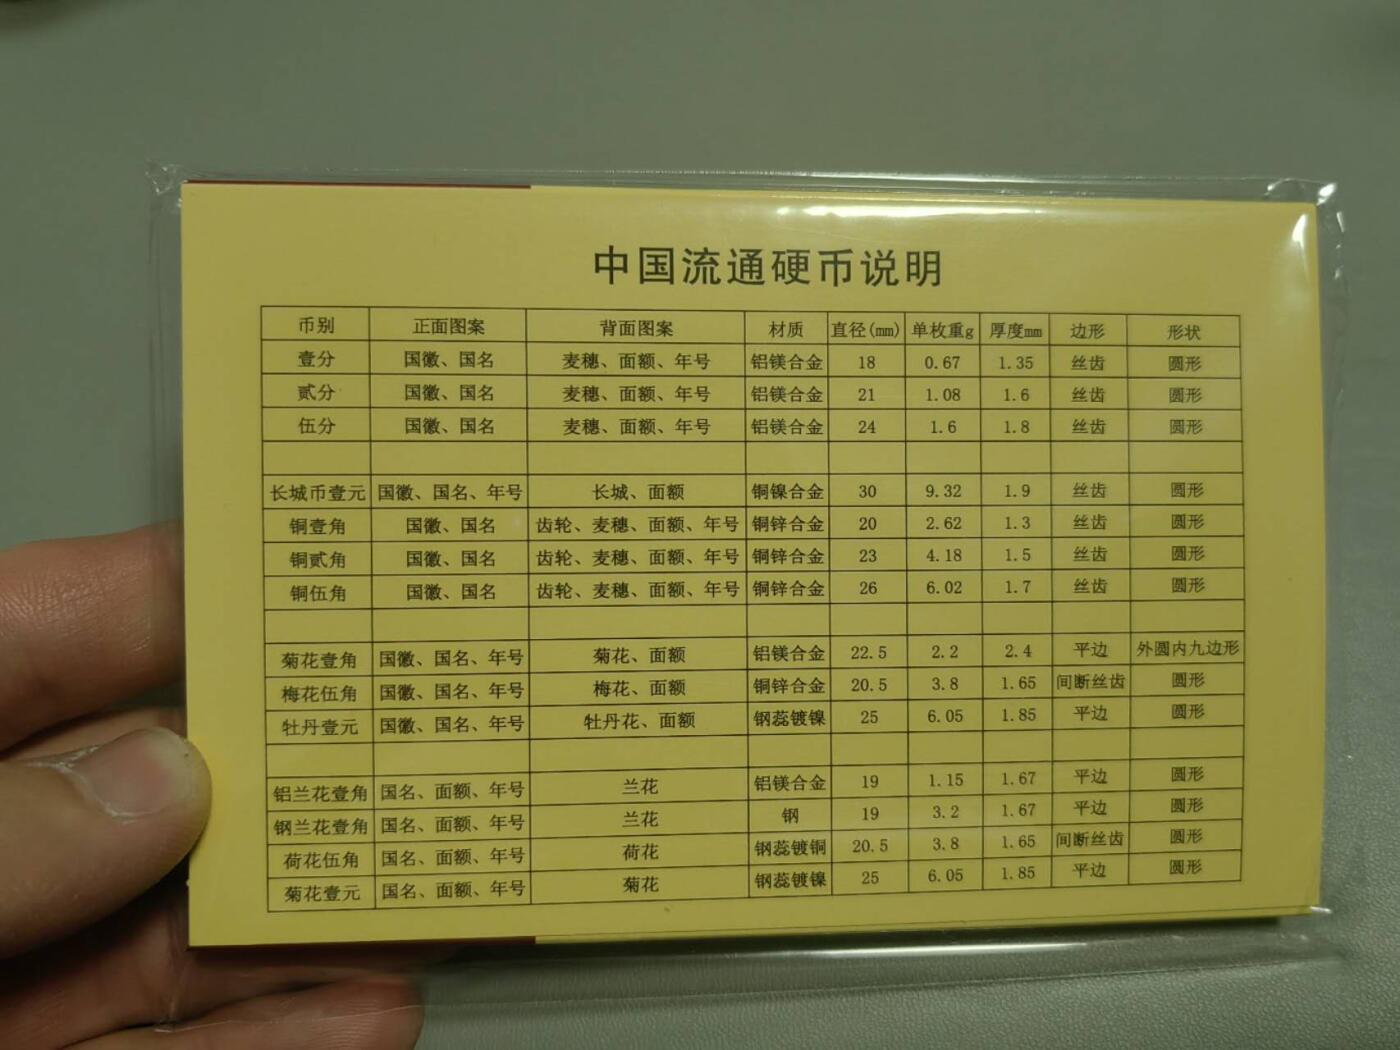 中国流通硬币说明
币别 正面图案 背面图案 材质 直径(mm) 单枚重g 厚度mm 边形 形状
壹分 国徽、国名 麦穗、面额、年号 铝镁合金 18 0.67 1.35 丝齿 圆形
贰分 国徽、国名 麦穗、面额、年号 铝镁合金 21 1.08 1.6 丝齿 圆形
伍分 国徽、国名 麦穗、面额、年号 铝镁合金 24 1.6 1.8 丝齿 圆形
长城币壹元 国徽、国名、年号 长城、面额 铜镍合金 30 9.32 1.9 丝齿 圆形
铜壹角 国徽、国名 齿轮、麦穗、面额、年号 铜锌合金 20 2.62 1.3 丝齿 圆形
铜贰角 国徽、国名 齿轮、麦穗、面额、年号 铜锌合金 23 4.18 1.5 丝齿 圆形
铜伍角 国徽、国名 齿轮、麦穗、面额、年号 铜锌合金 26 6.02 1.7 丝齿 圆形
菊花壹角 国徽、国名、年号 菊花、面额 铝镁合金 22.5 2.2 2.4 平边 外圆内九边形
梅花伍角 国徽、国名、年号 梅花、面额 铜锌合金 20.5 3.8 1.65 间断丝齿 圆形
牡丹壹元 国徽、国名、年号 牡丹花、面额 钢蕊镀镍 25 6.05 1.85 平边 圆形
铝兰花壹角 国名、面额、年号 兰花 铝镁合金 19 1.15 1.67 平边 圆形
钢兰花壹角 国名、面额、年号 兰花 钢 19 3.2 1.67 平边 圆形
荷花伍角 国名、面额、年号 荷花 钢蕊镀铜 20.5 3.8 1.65 间断丝齿 圆形
菊花壹元 国名、面额、年号 菊花 钢蕊镀镍 25 6.05 1.85 平边 圆形